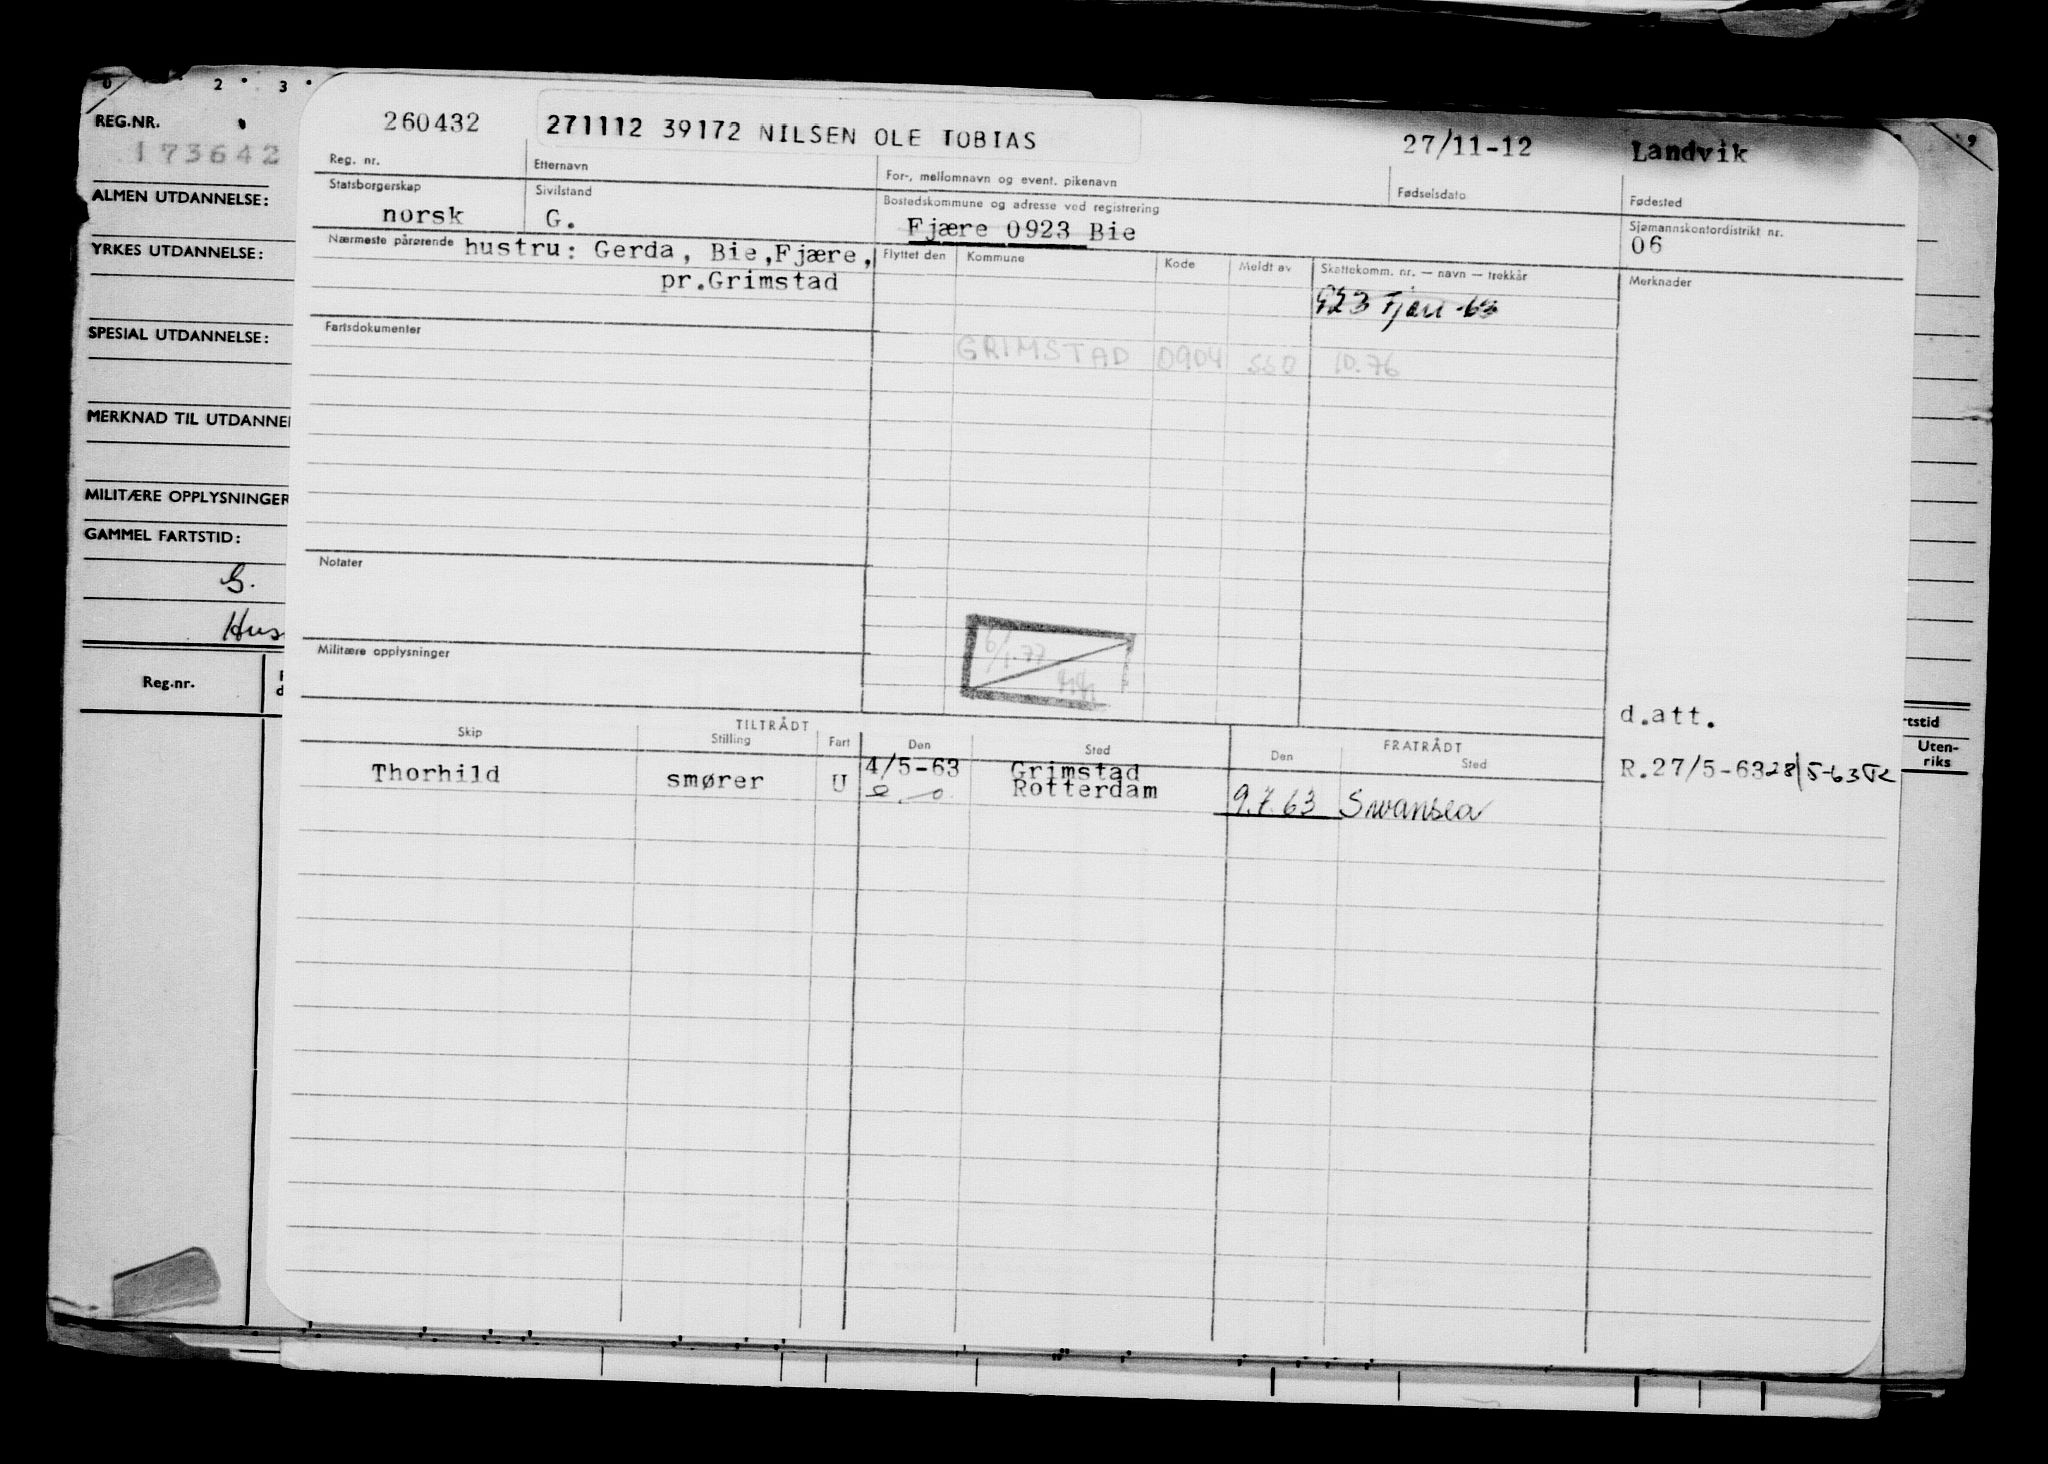 0 2 3 9
REG.NR.
173642
ALMEN UTDANNELSE:
YRKES UTDANNELSE:
SPESIAL UTDANNELSE:
MERKNAD TIL UTDANNE
MILITÆRE OPPLYSNINGER
GAMMEL FARTSTID:
G.
Hus
Reg.nr.
260432 271112 39172 NILSEN OLE TOBIAS 27/11-12 Landvik
Reg. nr. Etternavn For-, mellomnavn og event. pikenavn Fødselsdato Fødested
Statsborgerskap Sivilstand Bostedskommune og adresse ved registrering Sjømannskontordistrikt nr.
norsk G. Fjære 0923 Bie 06
Nærmeste pårørende hustru: Gerda, Bie, Fjære,
pr.Grimstad
Flyttet den Kommune Kode Meldt av Skattekomm. nr. — navn — trekkår Merknader
923 Fjære -63
Fartsdokumenter
GRIMSTAD 0904 SSØ 10.76
Notater
6/1.77
Militære opplysninger
d.att.
TILTRÅDT FRATRÅDT
Skip Stilling Fart Den Sted Den Sted
Thorhild smører U 4/5-63 Grimstad R.27/5-63 28/5-63
Rotterdam 9.7.63 Swansea
rtstid
Uten-
riks